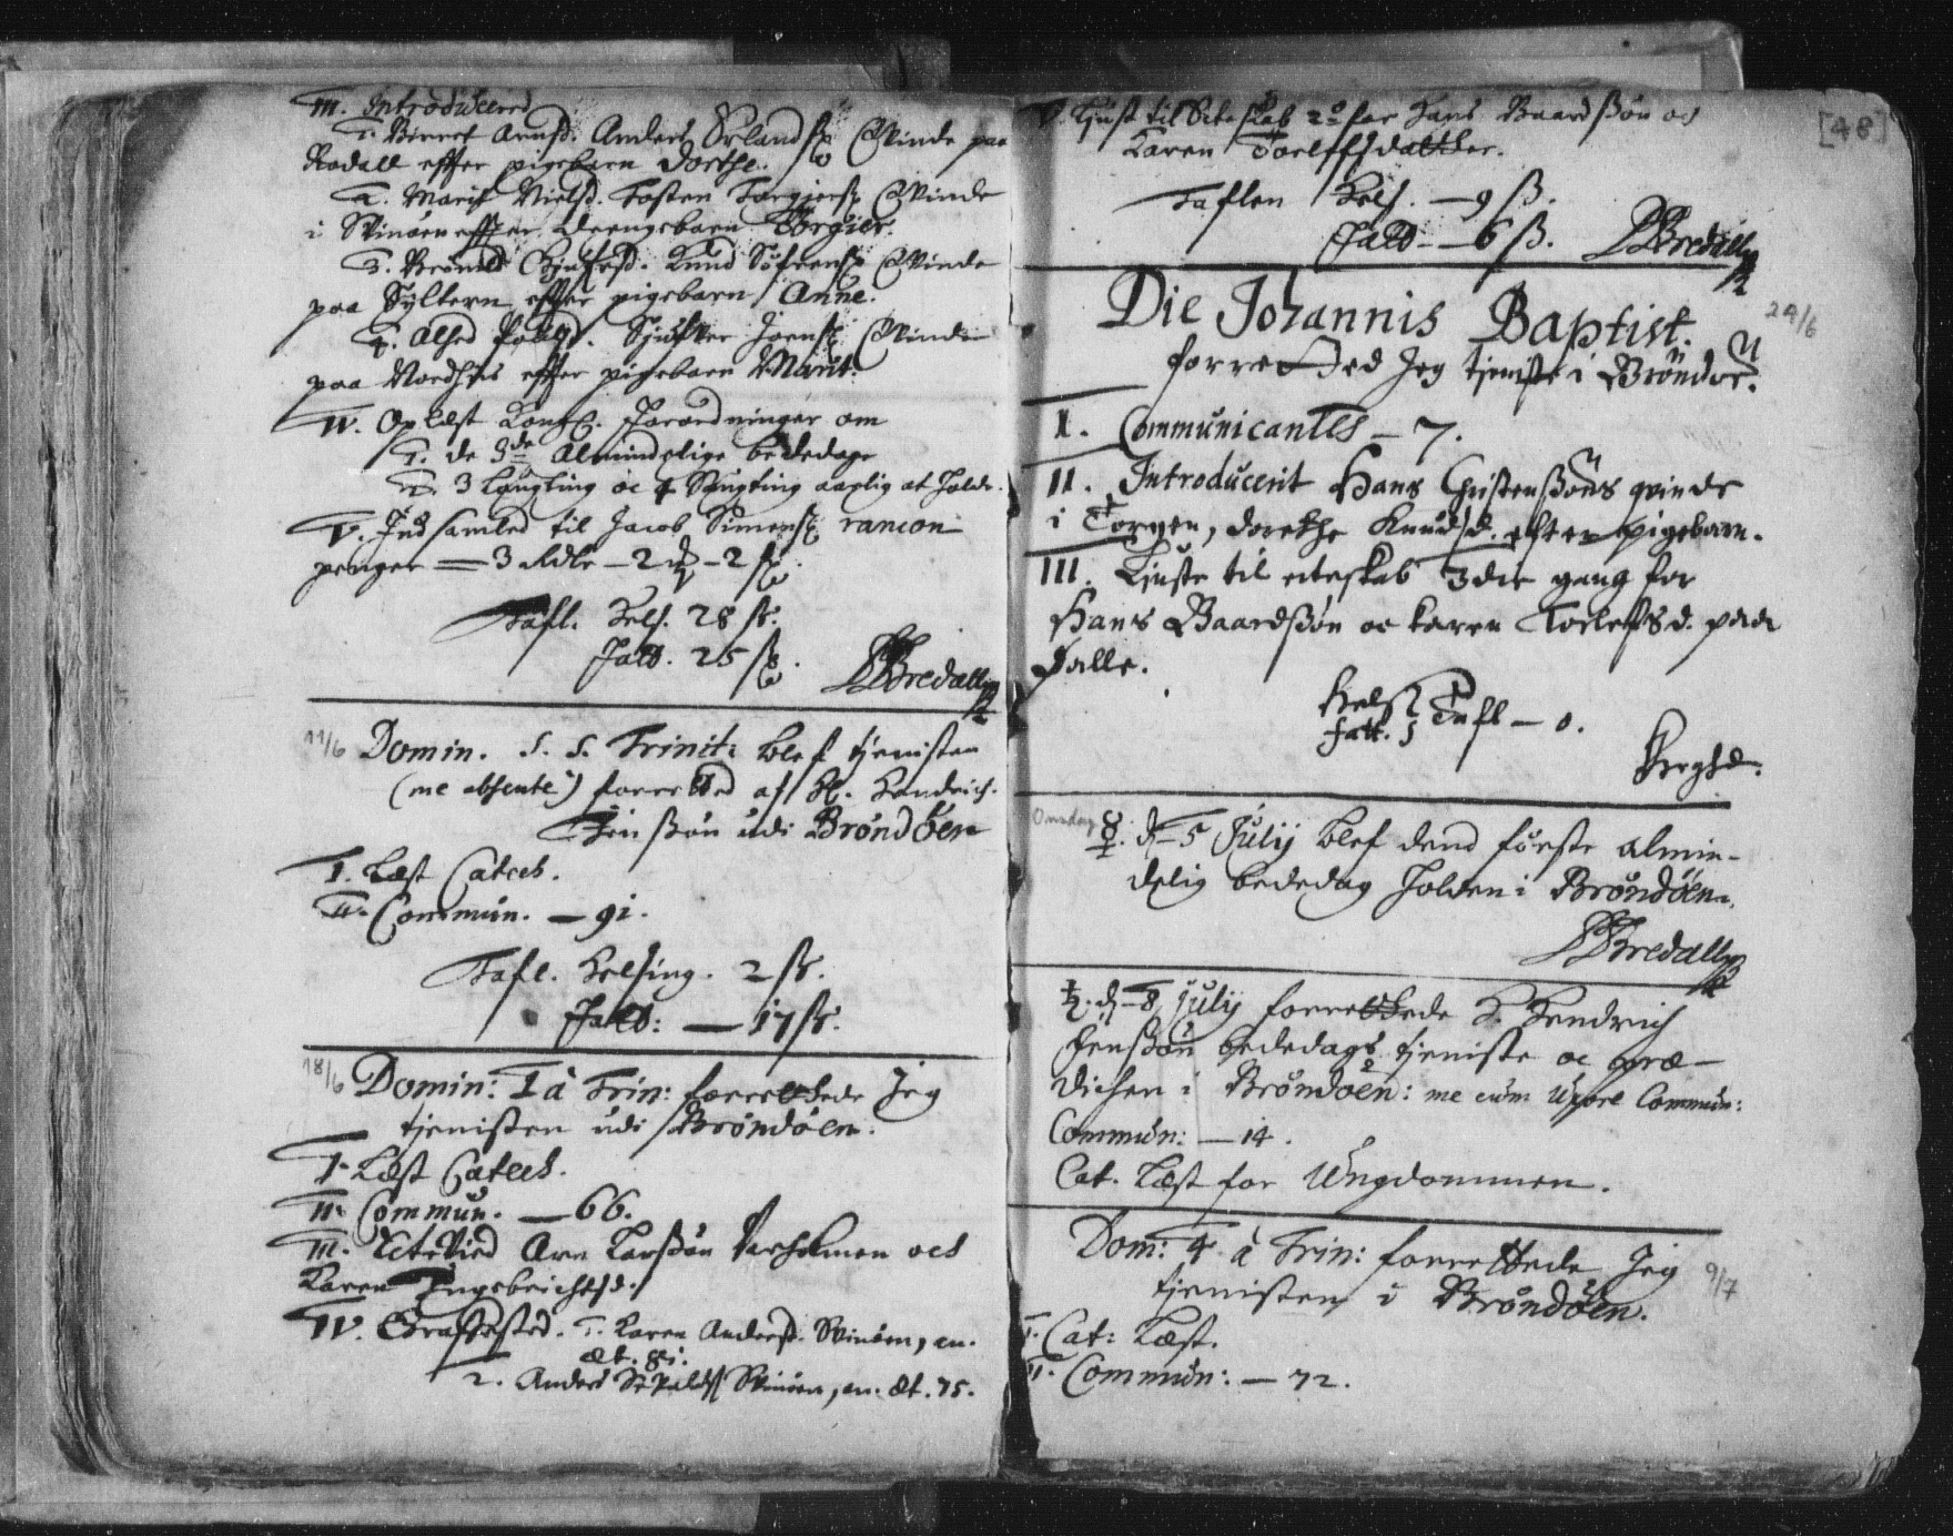 III. Introduceered
1. Birret Arnsd. Anders Erlandsß Qvinde paa
Rodall effter pigebarn Dorthe.
2. Marit Nielsd. Tosten Torgiersß Qvinde
i Svinøen effter Drengebarn Torgier.
3. Knud Søfrensß Qvinde
paa Sÿltern effter pigebarn Anne.
4. Alhed Povelsd. Siufver Joensß Qvinde
paa Nordhus effter pigebarn Marit.
IV. Oplæst Kongl. Forordninger om
1. de 3de Almindelige bededage
2. 3 Laugting oc 4 aarlig at holde.
V. Indsamled til Jacob Simensß rancon
penger — 3 Rdlr — 2 — 2 ß.
Tafl. Hels. 28 ß.
Fatt. 25 ß.
Bredall
11/6 Domin. S. S. Trinit: blef tienisten
(me absente) forretted af Hr. Hendrich
Jenßøn udi Brøndöen
I. Læst Catech.
II. Commun. — 91.
Tafl. Helsing. 2 ß.
Fatt: — 17 ß.
18/6 Domin: 1 à Trin: forrettede Jeg
tienisten udi Brøndöen.
I. Læst Catech.
II. Commun. — 66.
III. Ectevied Arn Larßøn och
Karen Ingebrichtsd.
IV. Graffested. 1. Karen Andersd. Svinøen, an.
æt. 81.
2. Anders Svinøen, an. æt. 75.
[48]
V. Liust til Ecteskab 2º for Hans Baardßøn oc
Karen Toelffsdatther.
Taflen Hels. — 9 ß.
Fatt. — 6 ß. Bredall
Die Johannis Baptist. 24/6
forretted Jeg tjeniste i Brøndøen.
I. Communicantes — 7.
II. Introducerit Hans Christenßøns qvinde
i Torgen, Dorethe Knudsd. efter pigebarn.
III. Liuste til ecteskab 3die gang for
Hans Baardßøn oc Karen Tolefsd. paa
Salle.
Hels
Fatt. } Tafl — 0.
Onsdag ☿. d. 5 Julij blef dend første almin-
delig bededag holden i Brøndöen.
Bredall
♄. d. 8 Julij forrettede H. Hendrich
Jenßøn bededags tieniste oc præ-
dichen i Brøndøen: me cum Uxore Commun:
Commun: — 14.
Cat. Læst for Ungdommen.
Dom: 4 à Trin: forrettede Jeg 9/7
tienisten i Brøndöen.
I. Cat: Læst.
II. Commun: — 72.